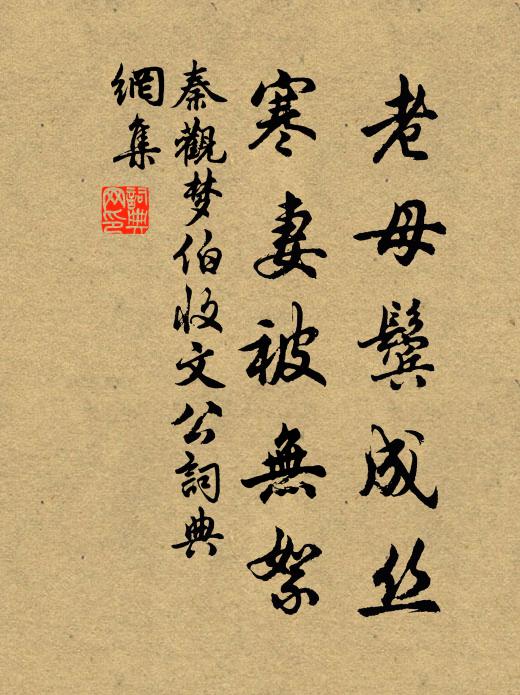 老母鬓成丝
寒妻被無絮
秦觀梦伯收文公詞典
網集
詞典
网印